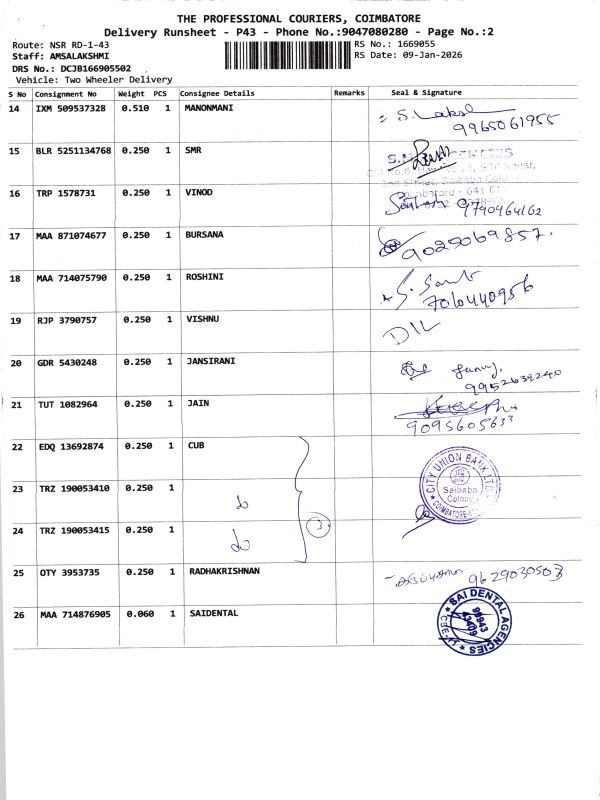 THE PROFESSIONAL COURIERS, COIMBATORE
Delivery Runsheet - P43 - Phone No.:9047080280 - Page No.:2
Route: NSR RD-1-43
RS No.: 1669055
Staff: AMSALAKSHMI
RS Date: 09-Jan-2026
DRS No.: DCJB166905502
Vehicle: Two Wheeler Delivery
S No Consignment No Weight PCS Consignee Details Remarks Seal & Signature
14 IXM 509537328 0.510 1 MANONMANI
9965061955
15 BLR 5251134768 0.250 1 SMR
16 TRP 1578731 0.250 1 VINOD
9790464162
17 MAA 871074677 0.250 1 BURSANA 9029069857.
18 MAA 714075790 0.250 1 ROSHINI
7010440956
19 RJP 3790757 0.250 1 VISHNU DIL
20 GDR 5430248 0.250 1 JANSIRANI
9952639240
21 TUT 1082964 0.250 1 JAIN
9095605633
22 EDQ 13692874 0.250 1 CUB
CITY UNION BANK LTD
Saibaba
Colony
COIMBATORE
23 TRZ 190053410 0.250 1 do
3
24 TRZ 190053415 0.250 1 do
25 OTY 3953735 0.250 1 RADHAKRISHNAN 9629030503
26 MAA 714876905 0.060 1 SAIDENTAL
SAI DENTAL AGENCIES
99943
43409